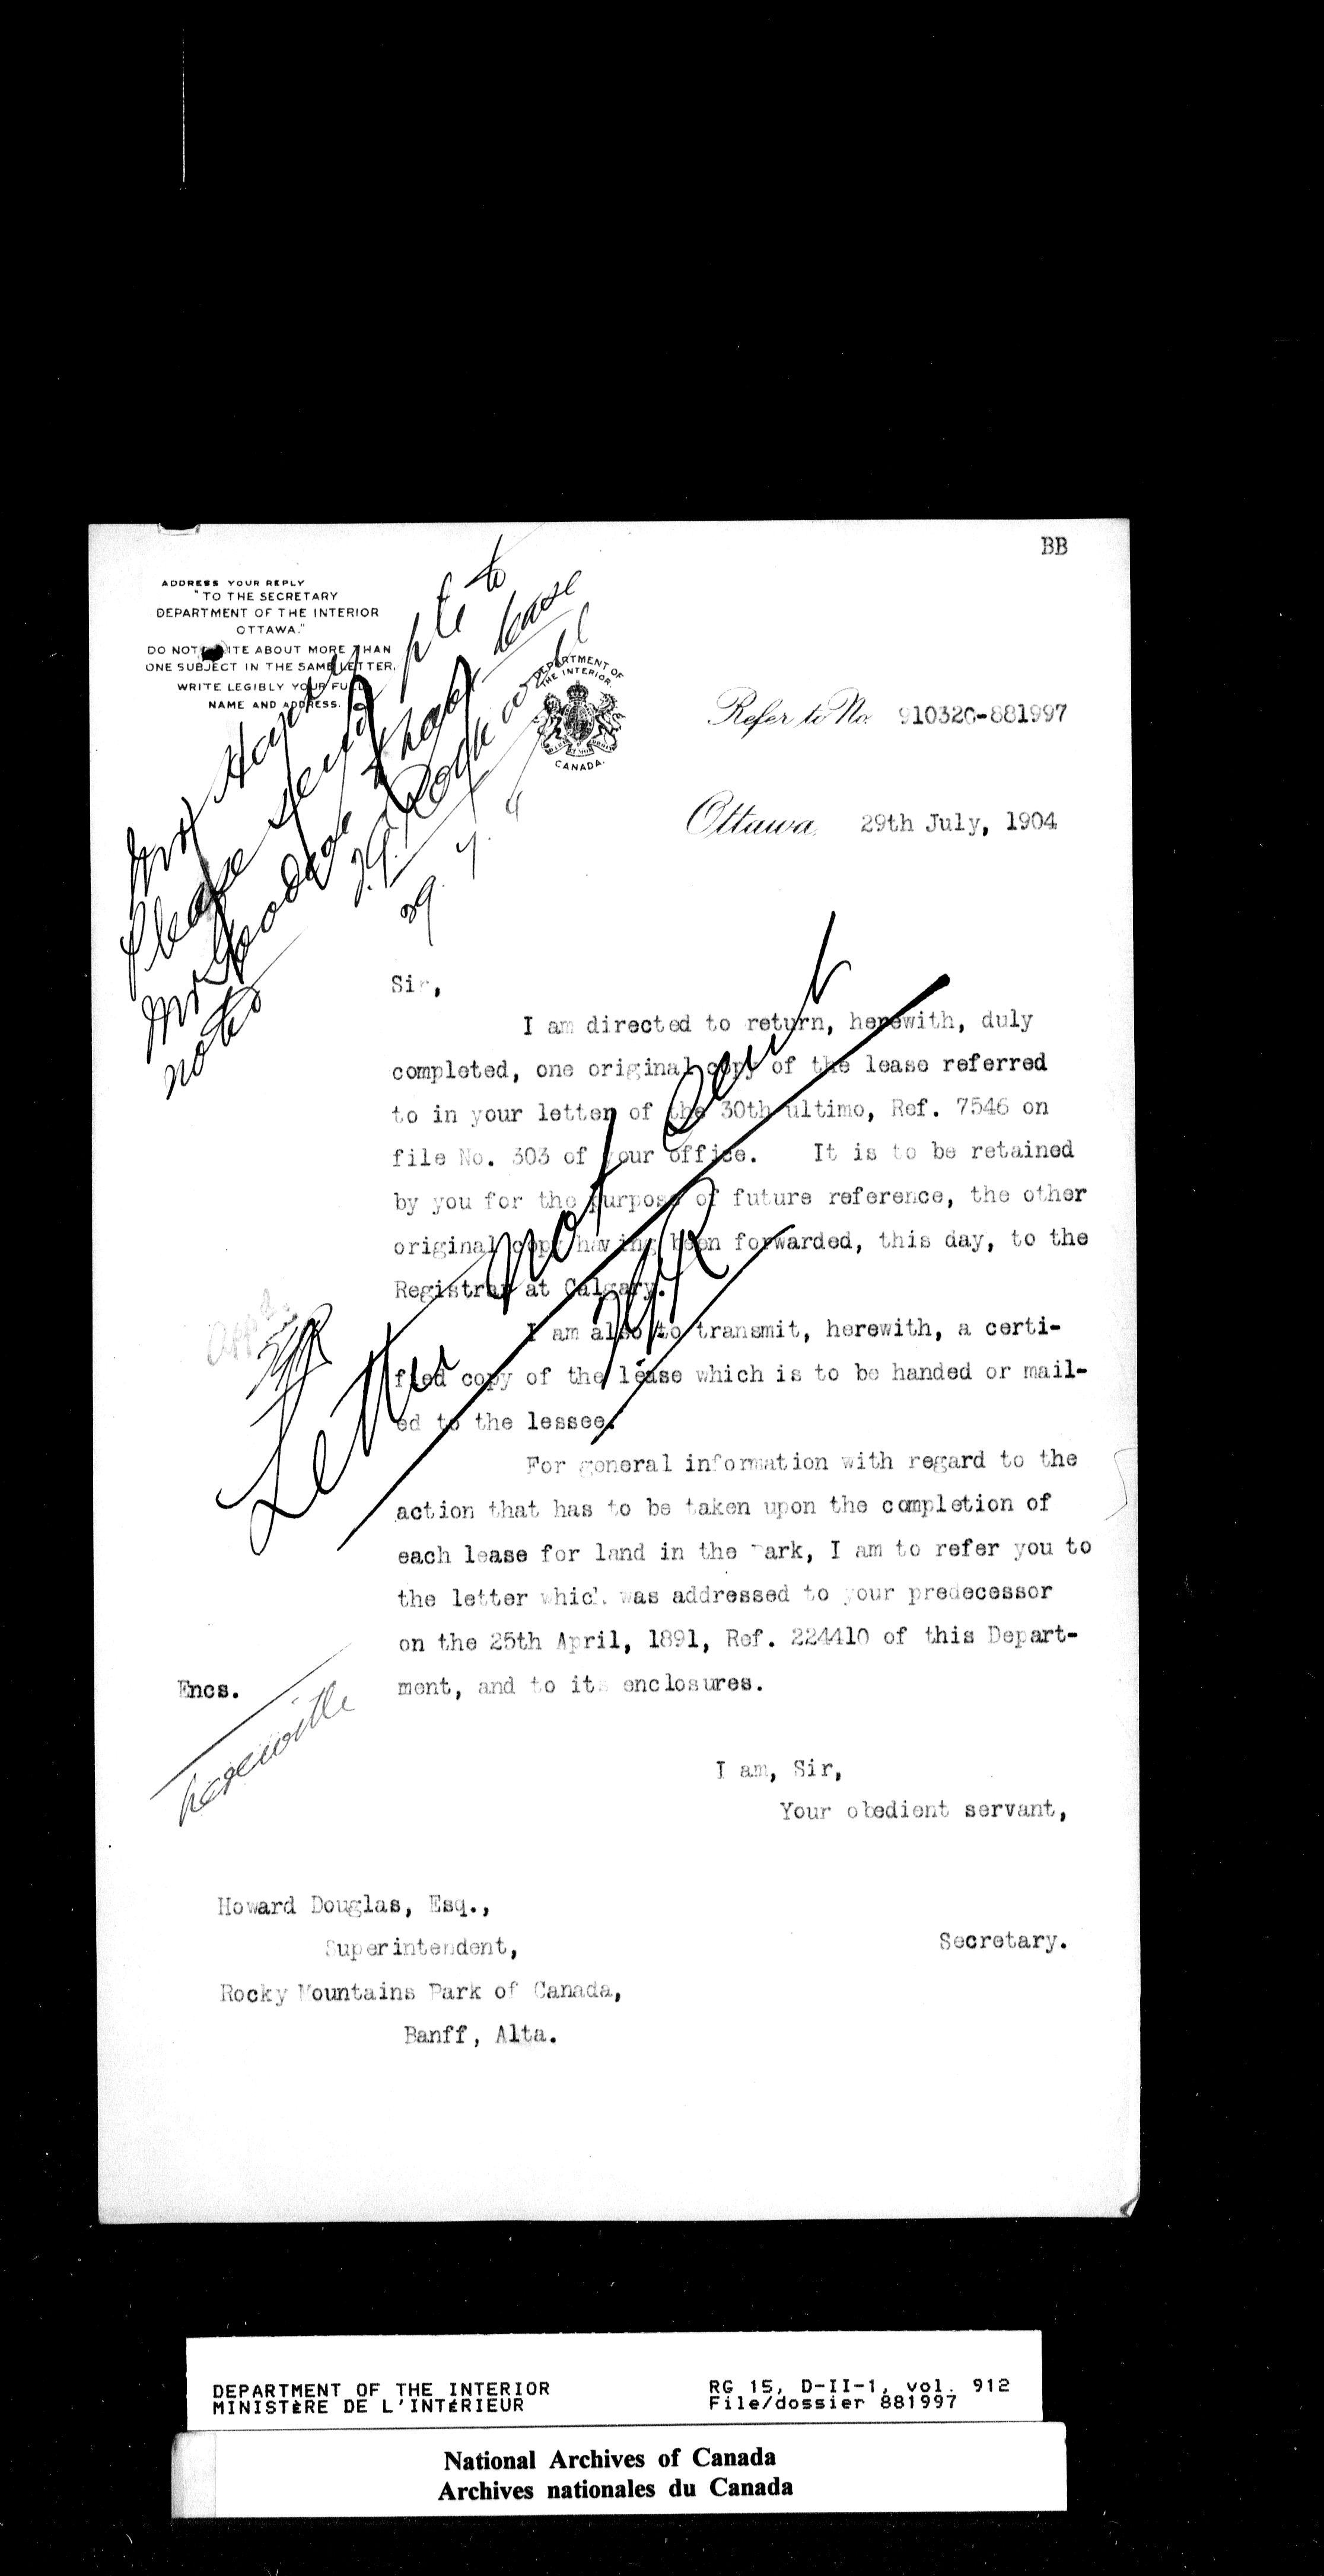 BB
ADDRESS YOUR REPLY
"TO THE SECRETARY
DEPARTMENT OF THE INTERIOR
OTTAWA."
DO NOT WRITE ABOUT MORE THAN
ONE SUBJECT IN THE SAME LETTER,
WRITE LEGIBLY YOUR FULL
NAME AND ADDRESS.
Mr
Please send pte to
Mr Goodeve lease
note
29. 7. 4
DEPARTMENT OF
THE INTERIOR.
CANADA.
Refer to No. 910320-881997
Ottawa, 29th July, 1904
Sir,
I am directed to return, herewith, duly
completed, one original copy of the lease referred
to in your letter of the 30th ultimo, Ref. 7546 on
file No. 303 of your office. It is to be retained
by you for the purpose of future reference, the other
original copy having been forwarded, this day, to the
Registrar at Calgary.
I am also to transmit, herewith, a certi-
fied copy of the lease which is to be handed or mail-
ed to the lessee.
For general information with regard to the
action that has to be taken upon the completion of
each lease for land in the Park, I am to refer you to
the letter which was addressed to your predecessor
on the 25th April, 1891, Ref. 224410 of this Depart-
ment, and to its enclosures.
Letter not sent
Encs.
herewith
I am, Sir,
Your obedient servant,
Howard Douglas, Esq.,
Superintendent,
Secretary.
Rocky Mountains Park of Canada,
Banff, Alta.
DEPARTMENT OF THE INTERIOR
MINISTÈRE DE L'INTÉRIEUR
RG 15, D-II-1, vol. 912
File/dossier 881997
National Archives of Canada
Archives nationales du Canada